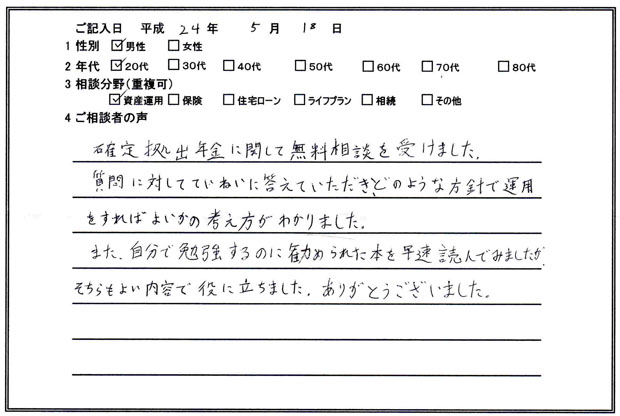 ご記入日 平成 24年 5月 18日
1 性別 ☑男性 □女性
2 年代 ☑20代 □30代 □40代 □50代 □60代 □70代 □80代
3 相談分野(重複可)
☑資産運用 □保険 □住宅ローン □ライフプラン □相続 □その他
4 ご相談者の声
確定拠出年金に関して無料相談を受けました。
質問に対してていねいに答えていただき、どのような方針で運用
をすればよいかの考え方がわかりました。
また、自分で勉強するのに勧められた本を早速読んでみましたが、
そちらもよい内容で役に立ちました。ありがとうございました。